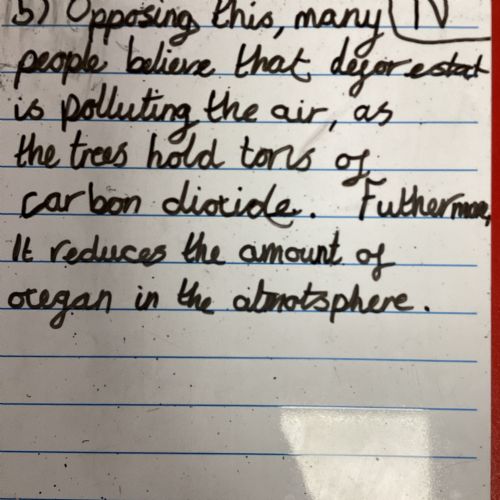 b) Opposing this, many
people believe that deforestat
is polluting the air, as
the trees hold tons of
carbon dioxide. Futhermore,
It reduces the amount of
oxegan in the atmotsphere.